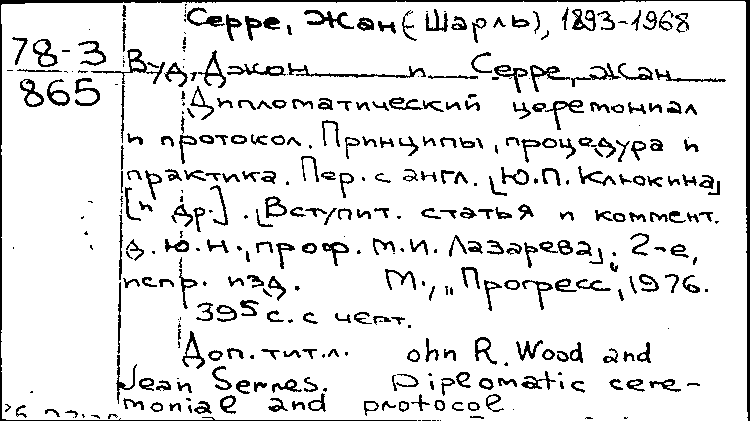 Серре, Жан (-Шарль), 1893-1968
78-3
865
Вуд, Джон и Серре, Жан
Дипломатический церемониал
и протокол. Принципы, процедура и
практика. Пер. с англ. [Ю.П. Клюкина]
[и др.]. [Вступит. статья и коммент.
д.ю.н., проф. М.И. Лазарева]. 2-е,
испр. изд. М., "Прогресс", 1976.
395 с. с черт.
Доп. тит. л. ohn R. Wood and
Jean Serres. Diplomatic cere-
monial and protocol